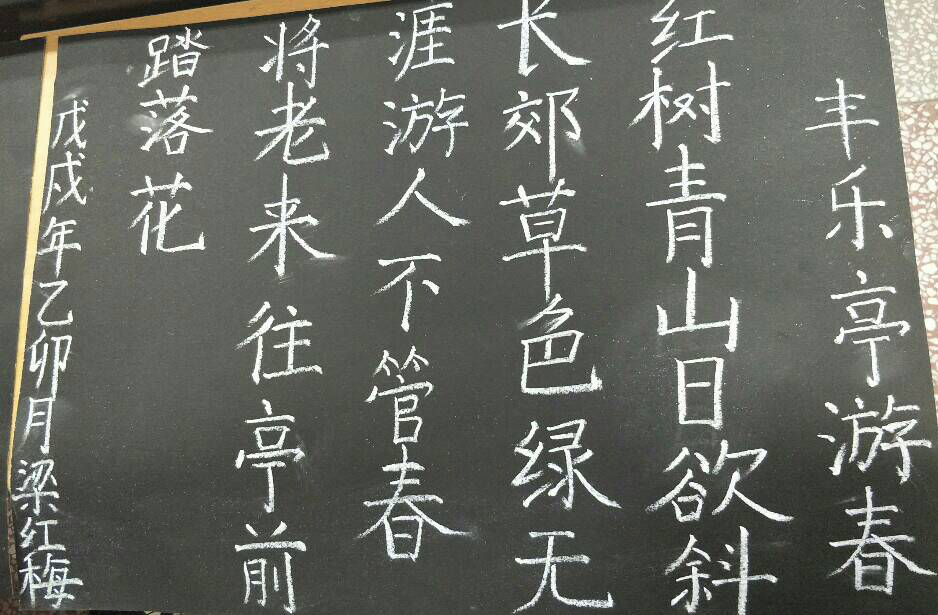 丰乐亭游春
红树青山日欲斜
长郊草色绿无
涯游人不管春
将老来往亭前
踏落花
戊戌年乙卯月梁红梅